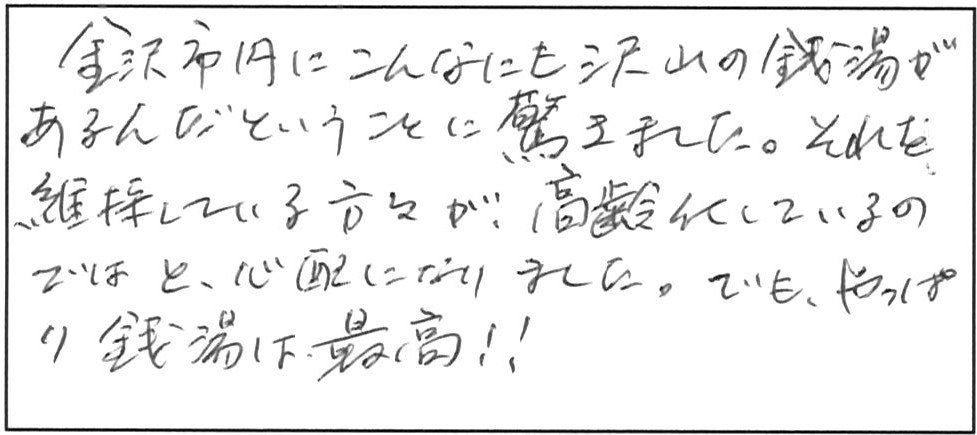 金沢市内にこんなにも沢山の銭湯が
あるんだということに驚きました。それを
維持している方々が、高齢化しているの
ではと、心配になりました。でも、やっぱ
り銭湯は最高!!